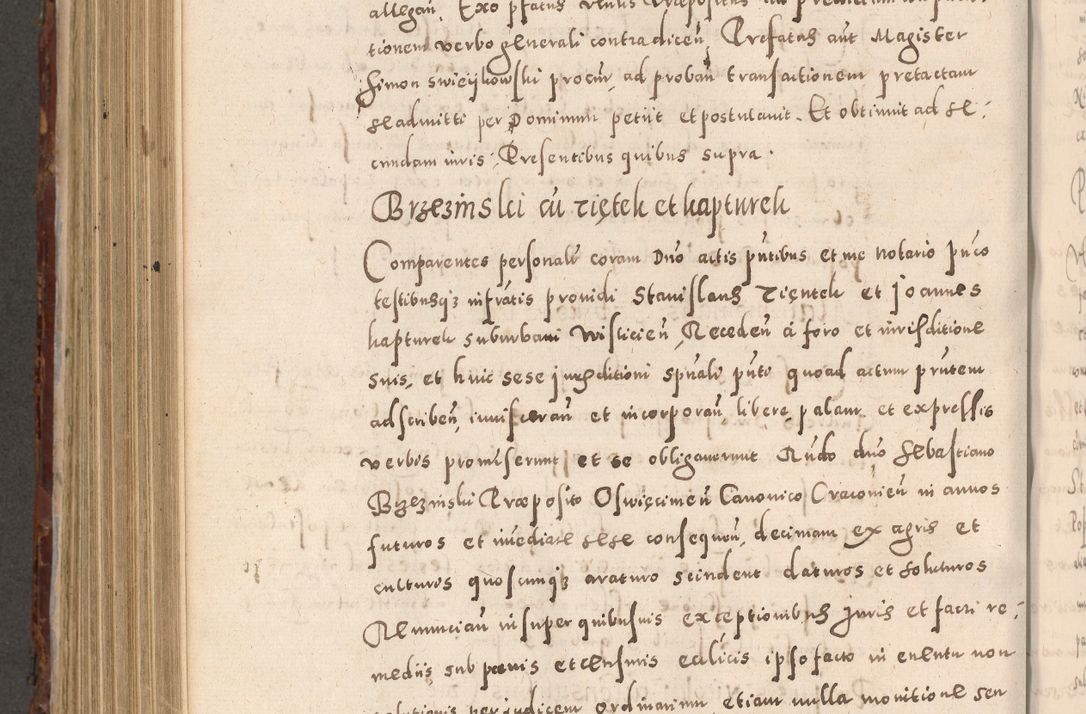 allegan̄. Ex o pſatus
tionem verbo generali contradiceñ, Prefatus aut Magister
Simon swieijkowſki procur̄ ad proban̄ transactionem pretactam
se admitti per Dominum petijt et postulauit. Et obtinuit ad se:
cundam iuris. Presentibus quibus supra.
Brzezinski cū Ziętek et kapturek
Comparentes perſonalr̄ coram Dn̄o actis pn̄tibus et me Notario pub̄co
teſtibusq₃ infrātis prouidi Stanislaus Ziętek et Joannes
kapturek suburbani Wiſlicien̄, Receden̄ a foro et iurisditione
suis, et huic sese jurisditioni spūali pn̄ti quoad actum pn̄tem
adſcriben̄, inuiſceran̄ et incorporan̄, libere, palam, et expreſſis
verbis promiserunt et se obligauerunt Rn̄do dn̄o Sebaſtiano
Brzezinski Præposito Oswięcimen̄ Canonico Cracouien̄ in annos
futuros et im̄ediate sese consequen̄, decimam ex agris et
culturis quoſcunq₃ araturo scindent daturos et soluturos
Renuncian̄ inſuper quibuſuis exceptionibus Juris et facti re:
medijs sub pœnis et cenſuris ecc̄licis ipſo facto in euentu non
solutionis per judicem Ordinarium etiam nulla monitione seu